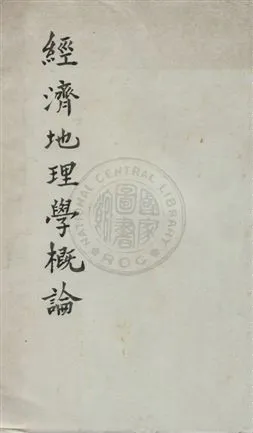 經濟地理學概論
NATIONAL CENTRAL LIBRARY
ROC
國家圖書館